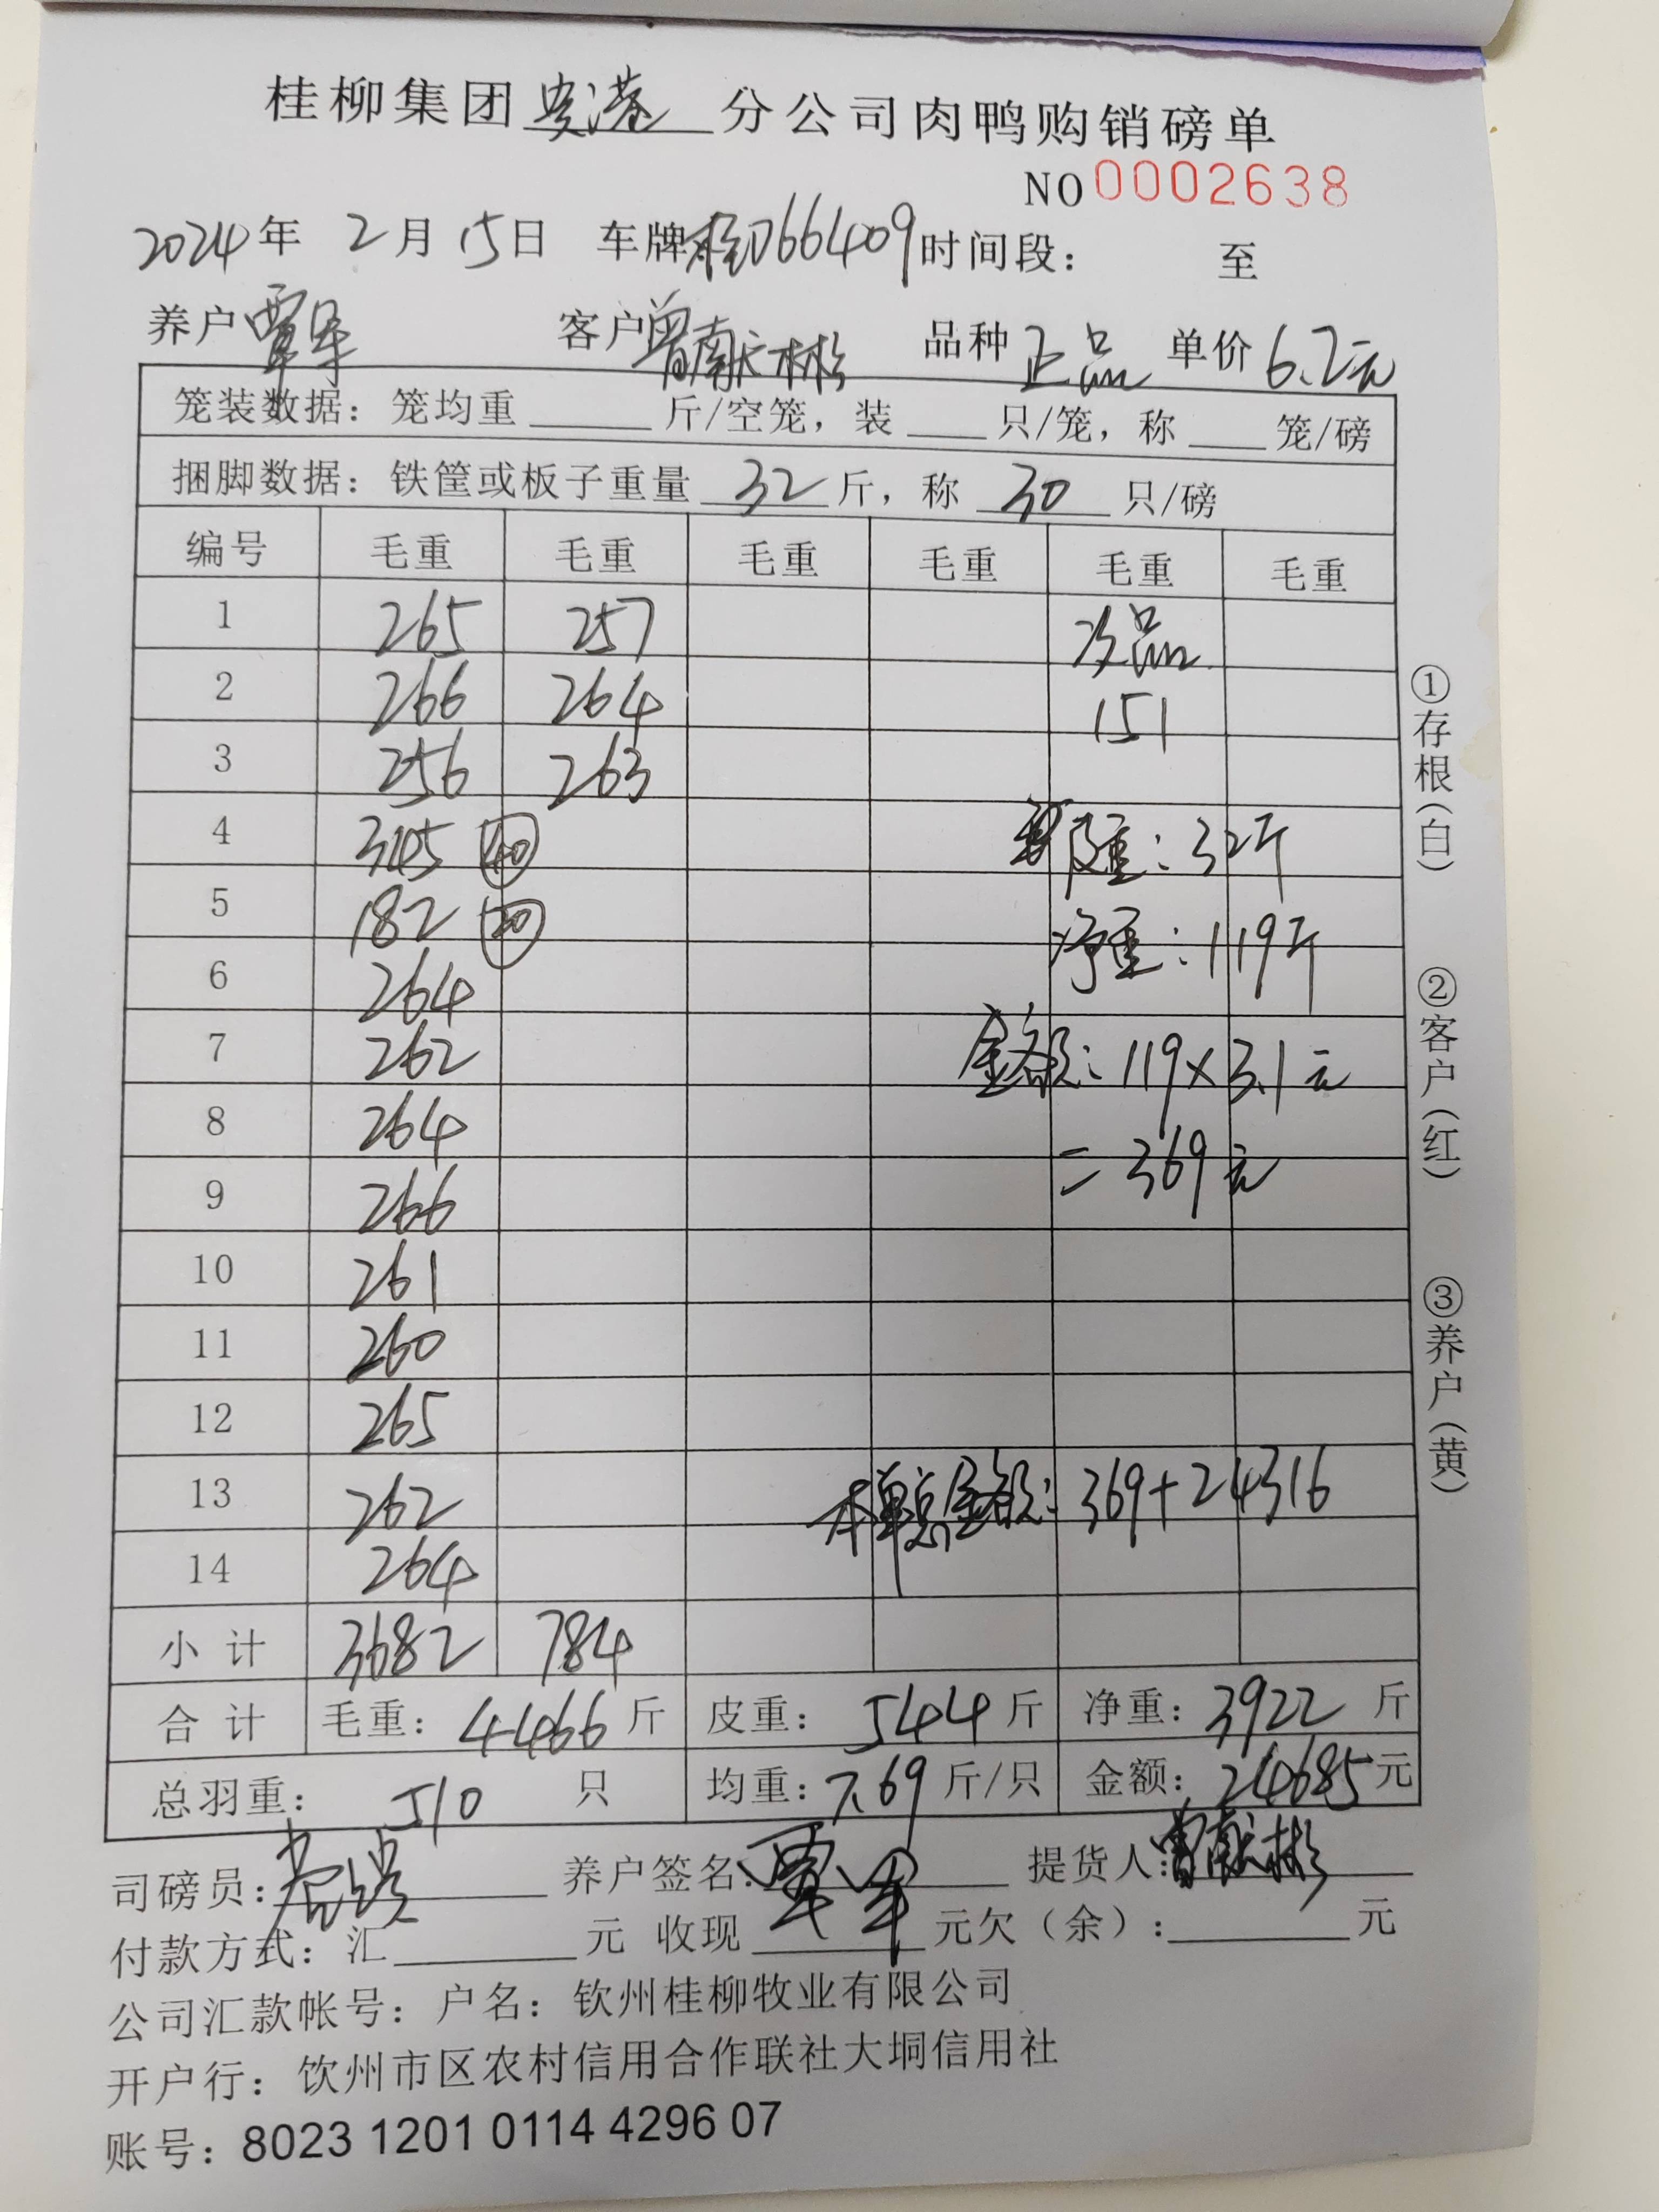 桂柳集团贵港分公司肉鸭购销磅单
NO 0002638
2024年 2月15日 车牌桂D66409 时间段： 至
养户覃军 客户曾献彬 品种正品 单价6.2元
笼装数据：笼均重 斤/空笼，装 只/笼，称 笼/磅
捆脚数据：铁筐或板子重量32斤，称30只/磅
编号 毛重 毛重 毛重 毛重 毛重 毛重
1 265 257 次品
2 266 264 151
3 256 263
4 345 40 皮重：32斤
5 182 20 净重：119斤
6 264
7 262 金额：119×3.1元
8 264 =369元
9 266
10 261
11 260
12 265
13 262 本单总金额：369+24316
14 264
小计 3682 784
合计 毛重：4466斤 皮重：544斤 净重：3922斤
总羽重：510只 均重：7.69斤/只 金额：24685元
司磅员： 养户签名：覃军 提货人：曾献彬
付款方式：汇 元 收现 元欠（余）： 元
公司汇款帐号：户名：钦州桂柳牧业有限公司
开户行：饮州市区农村信用合作联社大垌信用社
账号：8023 1201 0114 4296 07
①存根（白） ②客户（红） ③养户（黄）